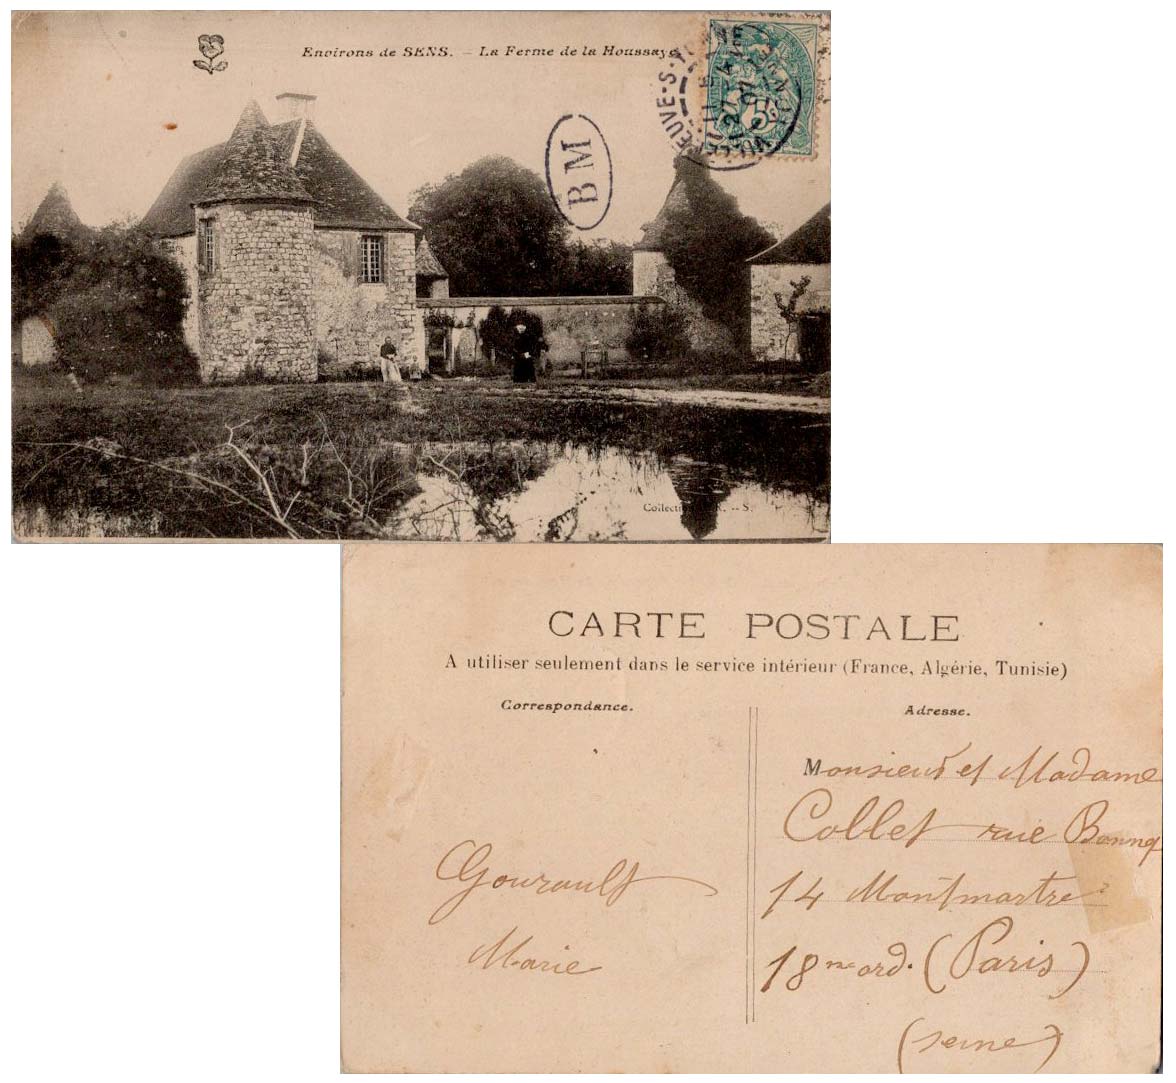 Environs de SENS. — La Ferme de la Houssaye
EUVE-S-YONNE
5
27
07
BM
Collection R. - S.
CARTE POSTALE
A utiliser seulement dans le service intérieur (France, Algérie, Tunisie)
Correspondance.
Adresse.
Monsieur et Madame
Collet rue Bonnet
14 Montmartre
18me ord. (Paris)
(seine)
Gourault
Marie